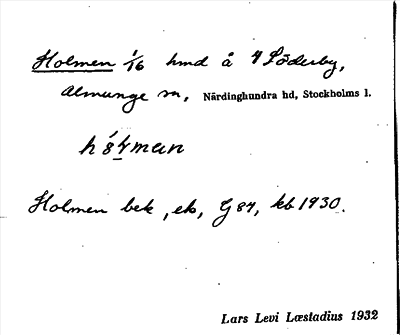 Holmen 1/16 hmd å 4 Söderby,
Almunge sn, Närdinghundra hd, Stockholms l.
Holmen bek, eb, G 84, kb 1930.
Lars Levi Læstadius 1932